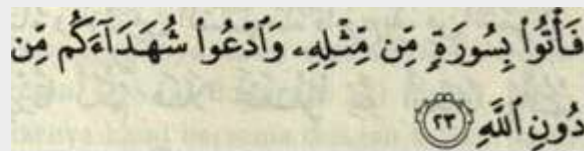 فَأْتُوا۟ بِسُورَةٍ مِّن مِّثْلِهِۦ وَٱدْعُوا۟ شُهَدَآءَكُم مِّن
دُونِ ٱللَّهِ ٢٣